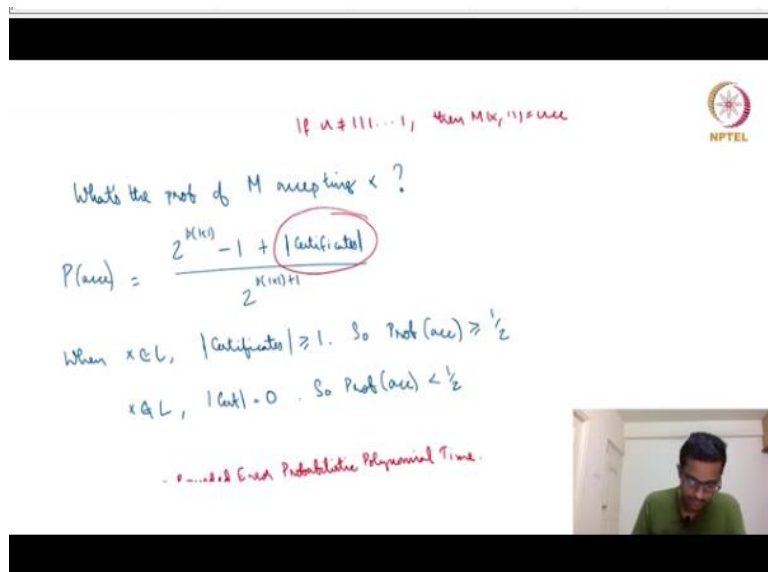 If u ≠ 111...1, then M(x, u) = acc
NPTEL
What's the prob of M accepting x ?
P(acc) = (2^{p(|x|)} - 1 + |Certificates|) / 2^{p(|x|)+1}
When x ∈ L, |Certificates| ≥ 1. So Prob(acc) ≥ 1/2
x ∉ L, |Cert| = 0. So Prob(acc) < 1/2
Error Probabilistic Polynomial Time.